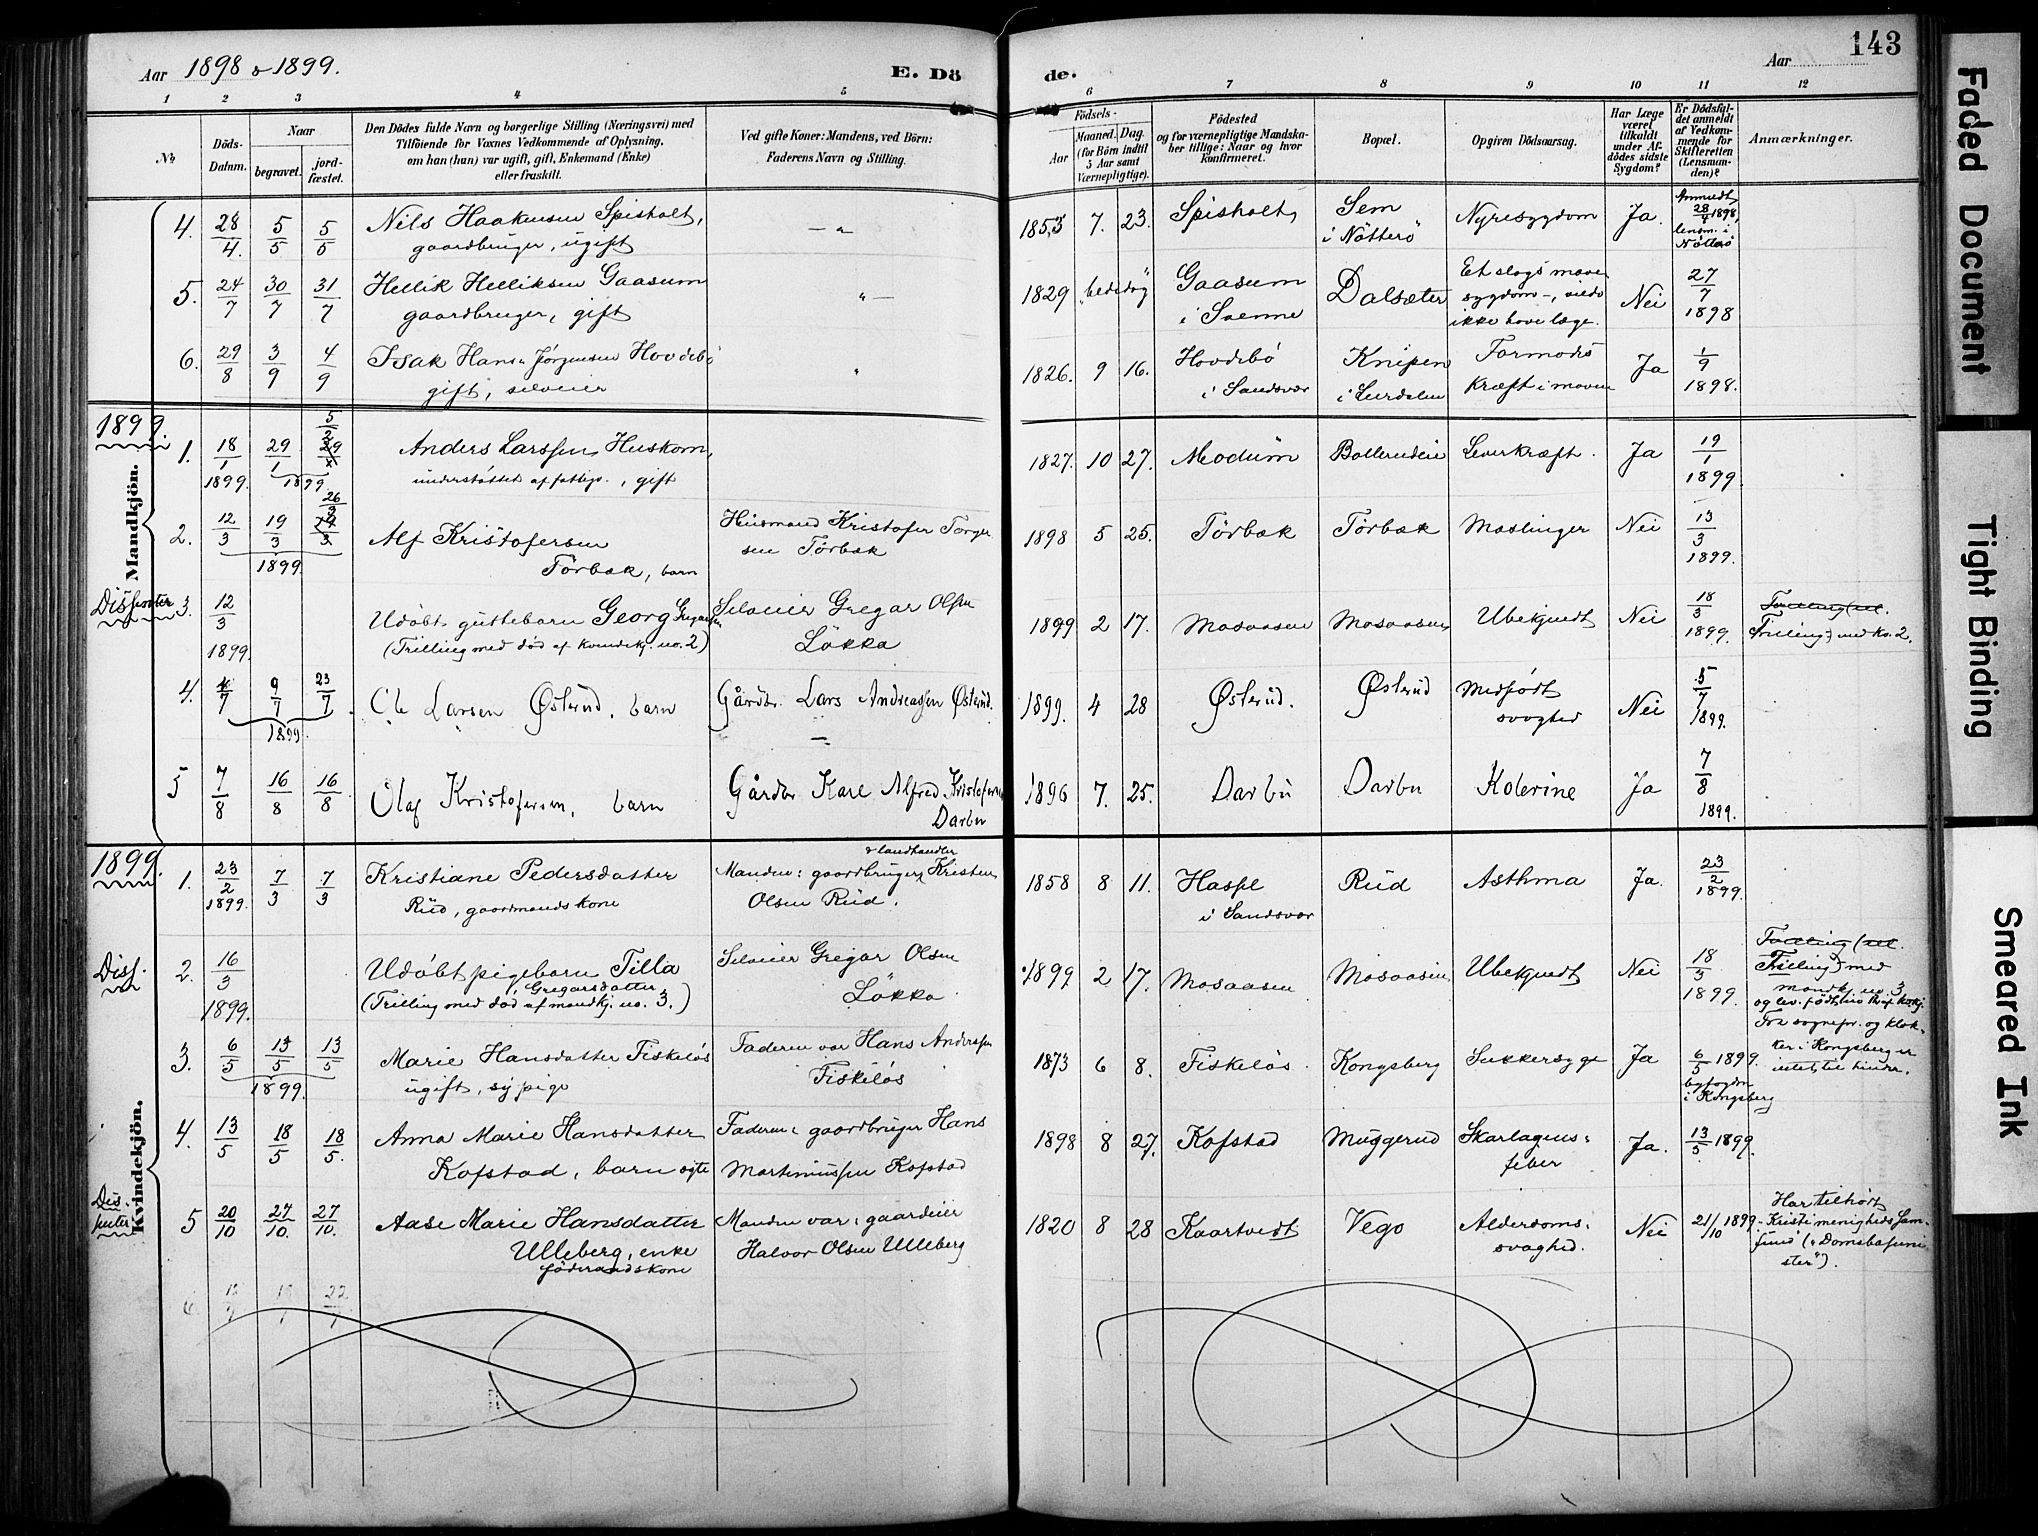 Aar 1898 & 1899.
E. Döde.
Aar
143
1 2 3 4 5 6 7 8 9 10 11 12
No
Döds-Datum.
Naar
begravet.
jordfæstet.
Den Dödes fulde Navn og borgerlige Stilling (Næringsvei) med
Tilföiende for Voxnes Vedkommende af Oplysning,
om han (hun) var ugift, gift, Enkemand (Enke)
eller fraskilt.
Ved gifte Koner: Mandens, ved Börn:
Faderens Navn og Stilling.
Födsels-
Aar
Maaned. Dag.
(for Börn indtil
5 Aar samt
Værnepligtige).
Födested
og for værnepligtige Mandska-
ber tillige: Naar og hvor
konfirmeret.
Bopæl.
Opgiven Dödsaarsag.
Har Læge
været
tilkaldt
under Af-
dödes sidste
Sygdom?
Er Dödsfal-
det anmeldt
af Vedkom-
mende for
Skifteretten
(Lensman-
den)?
Anmærkninger.
Mandkjön.
4. 28/4. 5/5 5/5 Nils Haakensen Spisholt,
gaardbruger, ugift
— " 1853 7. 23. Spisholt, Sem
i Nötterö
Nyresygdom Ja. Anmeldt
28/4 1898,
lensm. i
Nötterö
5. 24/7 30/7 31/7 Hellik Helliksen Gaasum
gaardbruger, gift
" — 1829 "bededag" Gaasum
i Svenne
Dalsæter Et slags mave
sygdom -, vilde
ikke have læge.
Nei 27/7
1898
6. 29/8 3/9 4/9 Isak Hans Jörgensen Hovdebö
gift, selveier
" 1826. 9 16. Hovdebö
i Sandsvær
Knipen
i Lurdalen
Formods
Kræft i maven
Ja 1/9
1898.
1899.
1. 18/1
1899. 29/1 5/2 29/1
1899
Anders Larssen Huskom,
understöttet af fattigv., gift
1827. 10 27. Modum Bollerudeie Leverkræft. Ja 19/1
1899.
2. 12/3 19/3 26/3 19/3
1899.
Alf Kristofersen
Törbæk, barn
Husmand Kristofer Torger
sen Törbæk
1898 5 25. Törbæk Törbæk Mæslinger Nei 13/3
1899.
Dissenter 3. 12/3
1899.
Udöbt guttebarn Georg Gregarsen
(Trilling med död af kvindekj. no. 2)
Selveier Gregar Olsen
Lökka
1899 2 17. Mosaasen Mosaasen, Ubekjendt Nei 18/3
1899.
Trilling med kv. 2.
4. 4/7 9/7 23/7.
1899
Ole Larsen Østerud, barn
Gårdbr. Lars Andreassen Østerud.
—
1899. 4 28 Østerud. Østerud Medfödt
svaghed
Nei 5/7
1899.
5 7/8 16/8 16/8 Olaf Kristofersen, barn
Gårdbr Karl Alfred Kristofersen
Darbu
1896 7. 25. Darbu Darbu Kolerine Ja 7/8
1899.
Kvindekjön.
1899.
1. 23/2
1899. 7/3 7/3 Kristiane Pedersdatter
Rud, gaardmandskone
& landhandler
Manden: gaardbruger Kristen
Olsen Rud.
1858 8 11. Haspl
i Sandsvær
Rud Asthma Ja. 23/2
1899.
Diss. 2. 16/3
1899.
Udöbt pigebarn Tilla
Gregarsdatter
(Trilling med död af mandkj. no. 3.)
Selveier Gregar Olsen
Lökka
1899 2 17. Mosaasen Mosaasen Ubekjendt Nei 18/3
1899.
Trilling med
mandkj. no. 3
3. 6/5 13/5 13/5
1899.
Marie Hansdatter Fiskelös
ugift, sypige
Faderen var Hans Anderssen
Fiskelös
1873 6 8. Fiskelös Kongsberg Sukkersyge Ja 6/5 1899.
byfogden
i Kongsberg
Fra sognepr. og klok-
ker i Kongsberg er
intet til hinder.
4. 13/5 18/5 18/5. Anna Marie Hansdatter
Kofstad, barn ægte
Faderen: gaardbruger Hans
Martiniussen Kofstad
1898 8 27. Kofstad Muggerud Skarlagens-
feber
Ja. 13/5 1899.
Dis-
senter 5 20/10 27/10. 27/10. Aase Marie Hansdatter
Ulleberg, enke
föderaadskone
Manden var: gaardeier
Halvor Olsen Ulleberg
1820 8 28 Kaartvedt Vego Alderdoms-
svaghed.
Nei 21/10 1899
Har tilhört
Kristi menigheds Sam-
fund ("Domsbasuni-
ster").
6.
Faded Document
Tight Binding
Smeared Ink